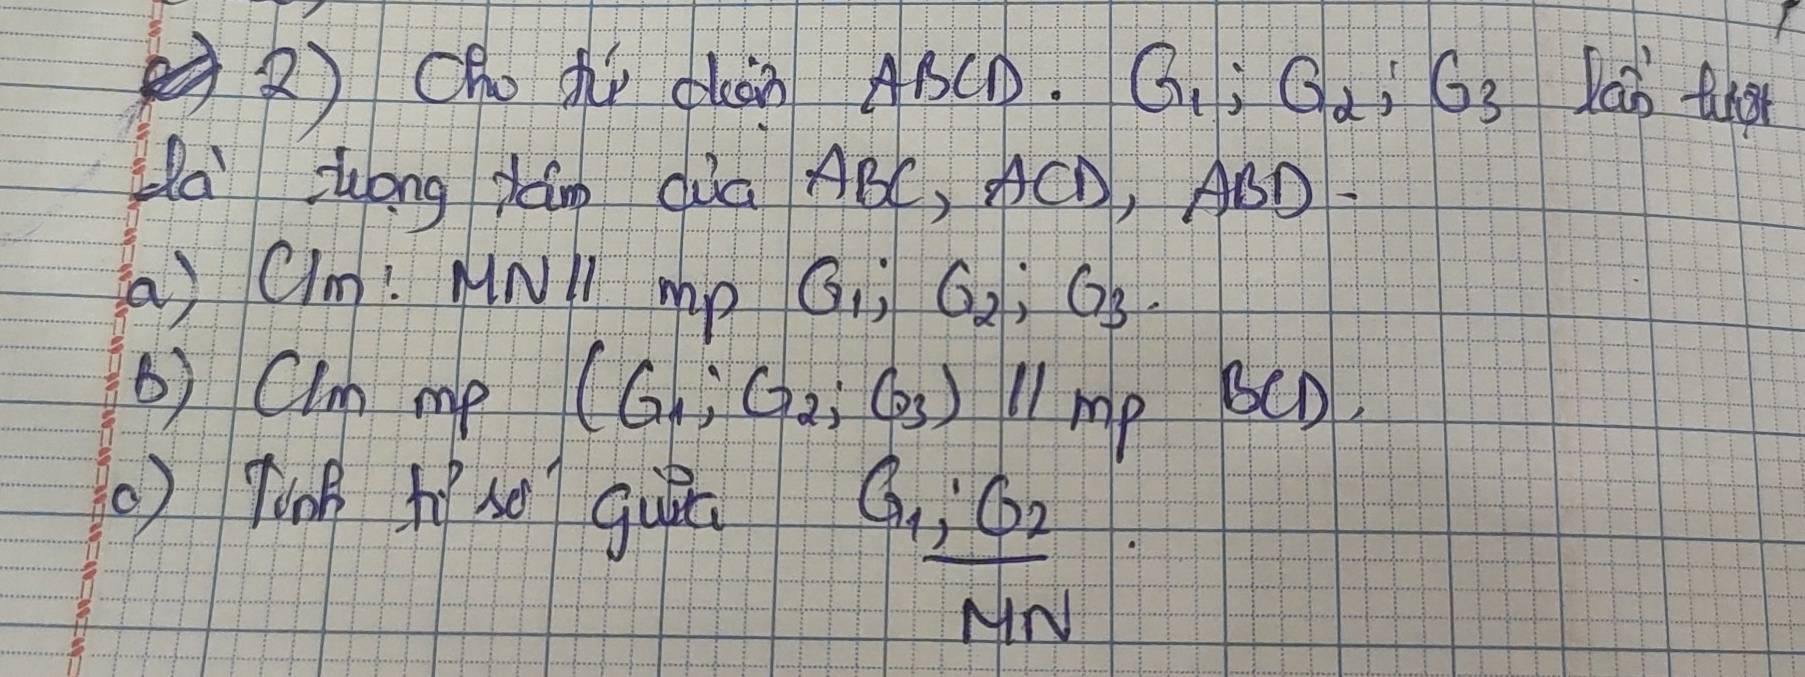 2) Cho tứ diện ABCD. G1; G2; G3 lần lượt
là trọng tâm của ABC, ACD, ABD.
a) C/m: MN // mp G1; G2; G3.
b) C/m mp (G1; G2; G3) // mp BCD.
c) Tính tỉ số giữa G1; G2
MN